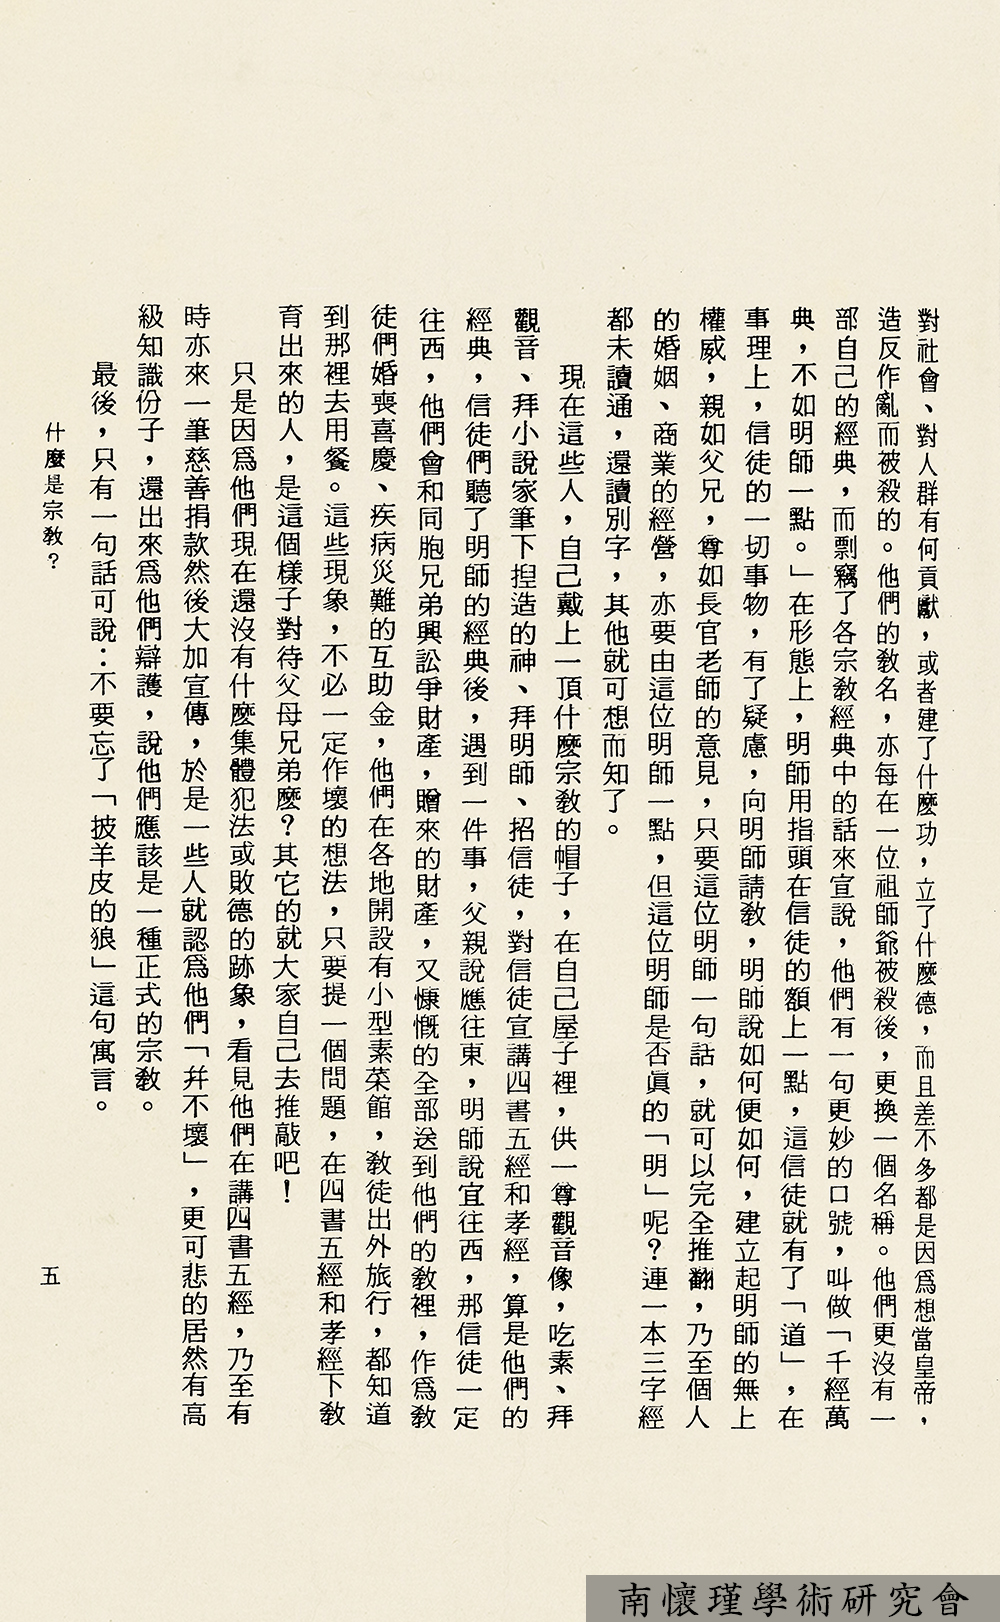 對社會、對人群有何貢獻，或者建了什麽功，立了什麽德，而且差不多都是因爲想當皇帝，
造反作亂而被殺的。他們的教名，亦每在一位祖師爺被殺後，更換一個名稱。他們更沒有一
部自己的經典，而剽竊了各宗教經典中的話來宣說，他們有一句更妙的口號，叫做「千經萬
典，不如明師一點。」在形態上，明師用指頭在信徒的額上一點，這信徒就有了「道」，在
事理上，信徒的一切事物，有了疑慮，向明師請教，明師說如何便如何，建立起明師的無上
權威，親如父兄，尊如長官老師的意見，只要這位明師一句話，就可以完全推翻，乃至個人
的婚姻、商業的經營，亦要由這位明師一點，但這位明師是否眞的「明」呢？連一本三字經
都未讀通，還讀別字，其他就可想而知了。
現在這些人，自己戴上一頂什麽宗教的帽子，在自己屋子裡，供一尊觀音像，吃素、拜
觀音、拜小說家筆下揑造的神、拜明師、招信徒，對信徒宣講四書五經和孝經，算是他們的
經典，信徒們聽了明師的經典後，遇到一件事，父親說應往東，明師說宜往西，那信徒一定
往西，他們會和同胞兄弟興訟爭財產，贈來的財產，又慷慨的全部送到他們的教裡，作爲教
徒們婚喪喜慶、疾病災難的互助金，他們在各地開設有小型素菜館，教徒出外旅行，都知道
到那裡去用餐。這些現象，不必一定作壞的想法，只要提一個問題，在四書五經和孝經下教
育出來的人，是這個樣子對待父母兄弟麽？其它的就大家自己去推敲吧！
只是因爲他們現在還沒有什麽集體犯法或敗德的跡象，看見他們在講四書五經，乃至有
時亦來一筆慈善捐款然後大加宣傳，於是一些人就認爲他們「幷不壞」，更可悲的居然有高
級知識份子，還出來爲他們辯護，說他們應該是一種正式的宗教。
最後，只有一句話可說：不要忘了「披羊皮的狼」這句寓言。
什麽是宗教？
五
南懷瑾學術研究會